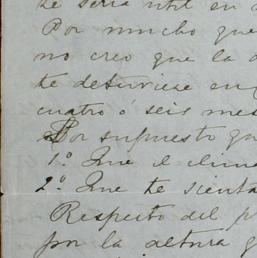 te seria util en
Por mucho que
no creo que la
te detuviese en
cuatro ó seis mes
Por supuesto qu
1.º Que el clima
2.º Que te sienta
Respecto del p
por la altura q